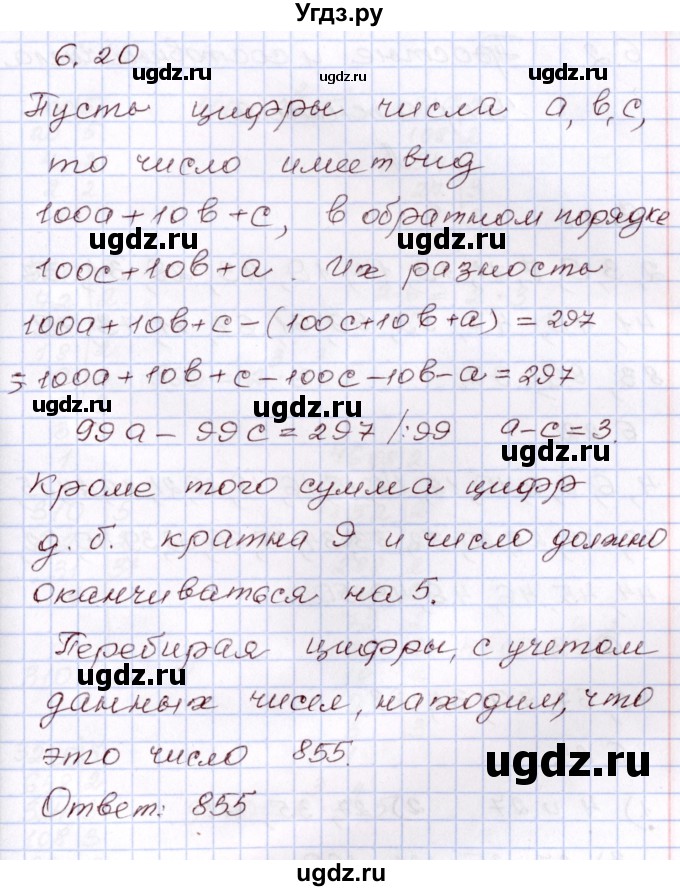 Угдз.ру
6.20
ugdz.ru ugdz.ru ugdz.ru
Пусть цифры числа а, в, с,
то число имеет вид
100а+10в+с, в обратном порядке
ugdz.ru ugdz.ru
100с+10в+а. Их разность
100а+10в+с-(100с+10в+а) = 297
= 100а+10в+с-100с-10в-а=297
ugdz.ru ugdz.ru
99а-99с=297 /:99 а-с=3.
ugdz.ru
Кроме того сумма цифр
д. б. кратна 9 и число должно
ugdz.ru
оканчиваться на 5.
Перебирая цифры, с учетом
ugdz.ru ugdz.ru
данных чисел, находим, что
это число 855.
ugdz.ru
Ответ: 855
ugdz.ru ugdz.ru